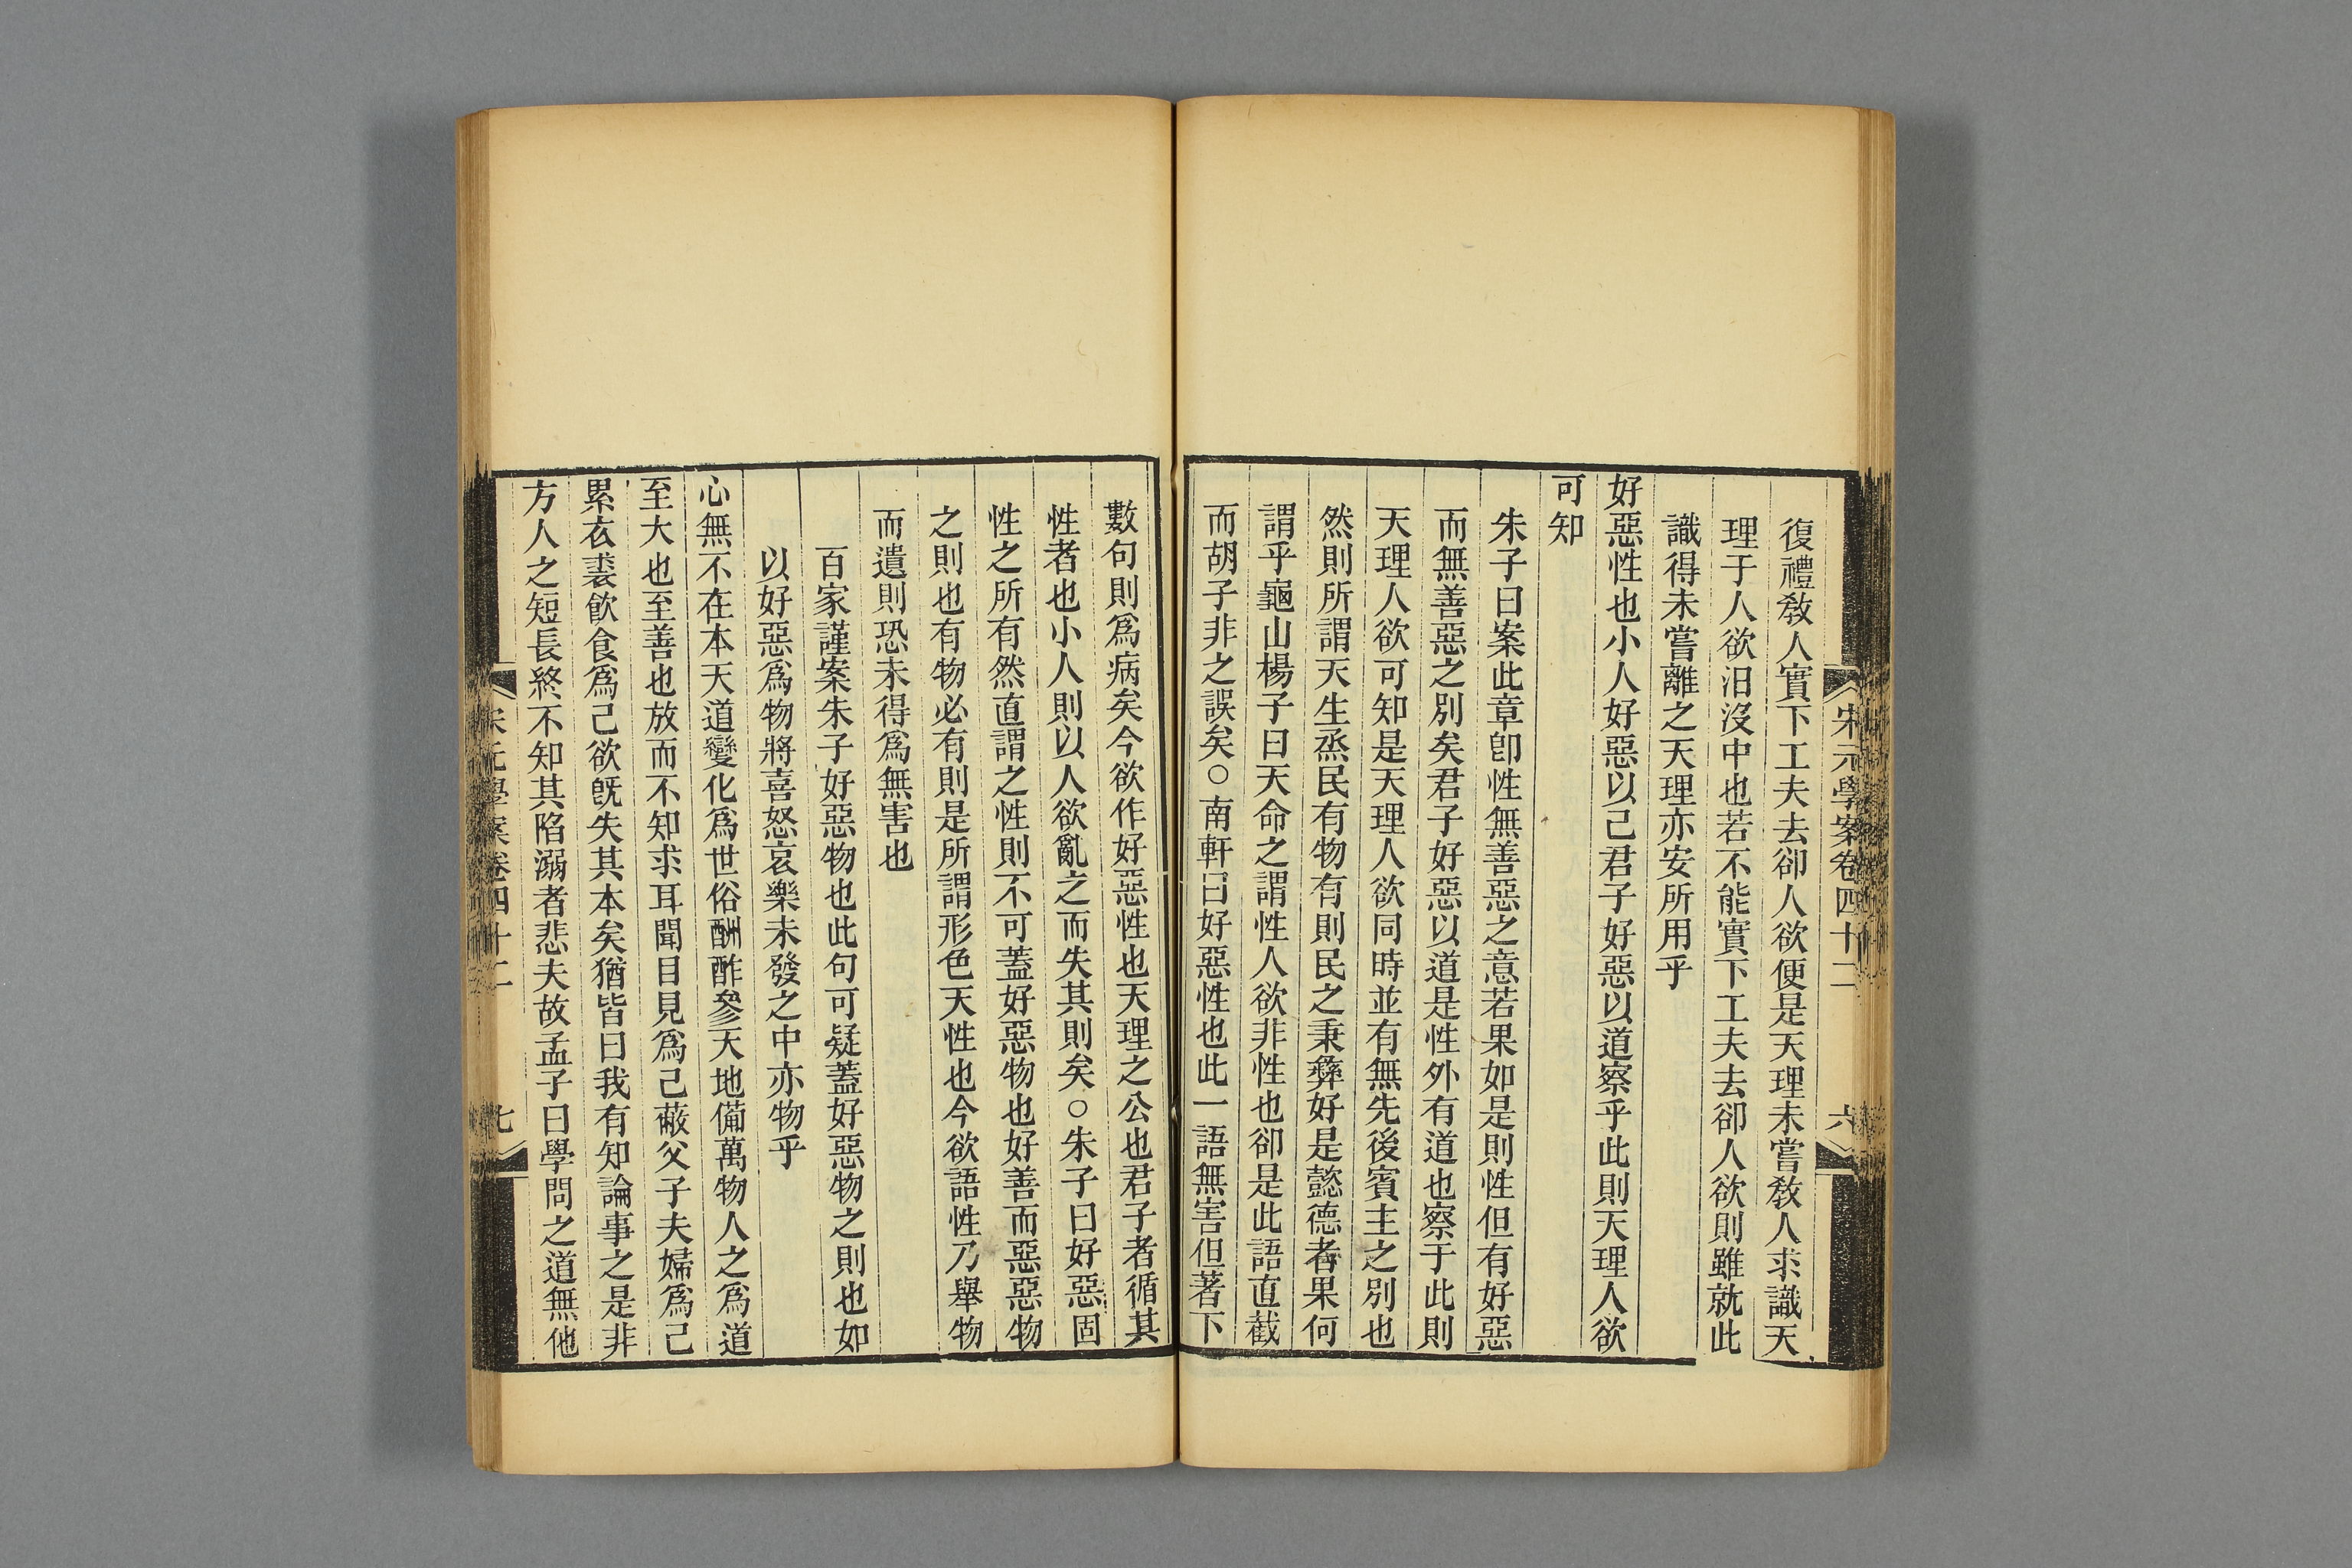 宋元學案卷四十二
六
復禮敎人實下工夫去卻人欲便是天理未嘗敎人求識天
理于人欲汨沒中也若不能實下工夫去卻人欲則雖就此
識得未嘗離之天理亦安所用乎
好惡性也小人好惡以己君子好惡以道察乎此則天理人欲
可知
朱子曰案此章卽性無善惡之意若果如是則性但有好惡
而無善惡之別矣君子好惡以道是性外有道也察于此則
天理人欲可知是天理人欲同時並有無先後賓主之別也
然則所謂天生烝民有物有則民之秉彝好是懿德者果何
謂乎龜山楊子曰天命之謂性人欲非性也卻是此語直截
而胡子非之誤矣○南軒曰好惡性也此一語無害但著下
數句則爲病矣今欲作好惡性也天理之公也君子者循其
性者也小人則以人欲亂之而失其則矣○朱子曰好惡固
性之所有然直謂之性則不可蓋好惡物也好善而惡惡物
之則也有物必有則是所謂形色天性也今欲語性乃舉物
而遺則恐未得爲無害也
百家謹案朱子好惡物也此句可疑蓋好惡物之則也如
以好惡爲物將喜怒哀樂未發之中亦物乎
心無不在本天道變化爲世俗酬酢參天地備萬物人之爲道
至大也至善也放而不知求耳聞目見爲己蔽父子夫婦爲己
累衣裘飮食爲己欲旣失其本矣猶皆曰我有知論事之是非
方人之短長終不知其陷溺者悲夫故孟子曰學問之道無他
宋元學案卷四十二
七